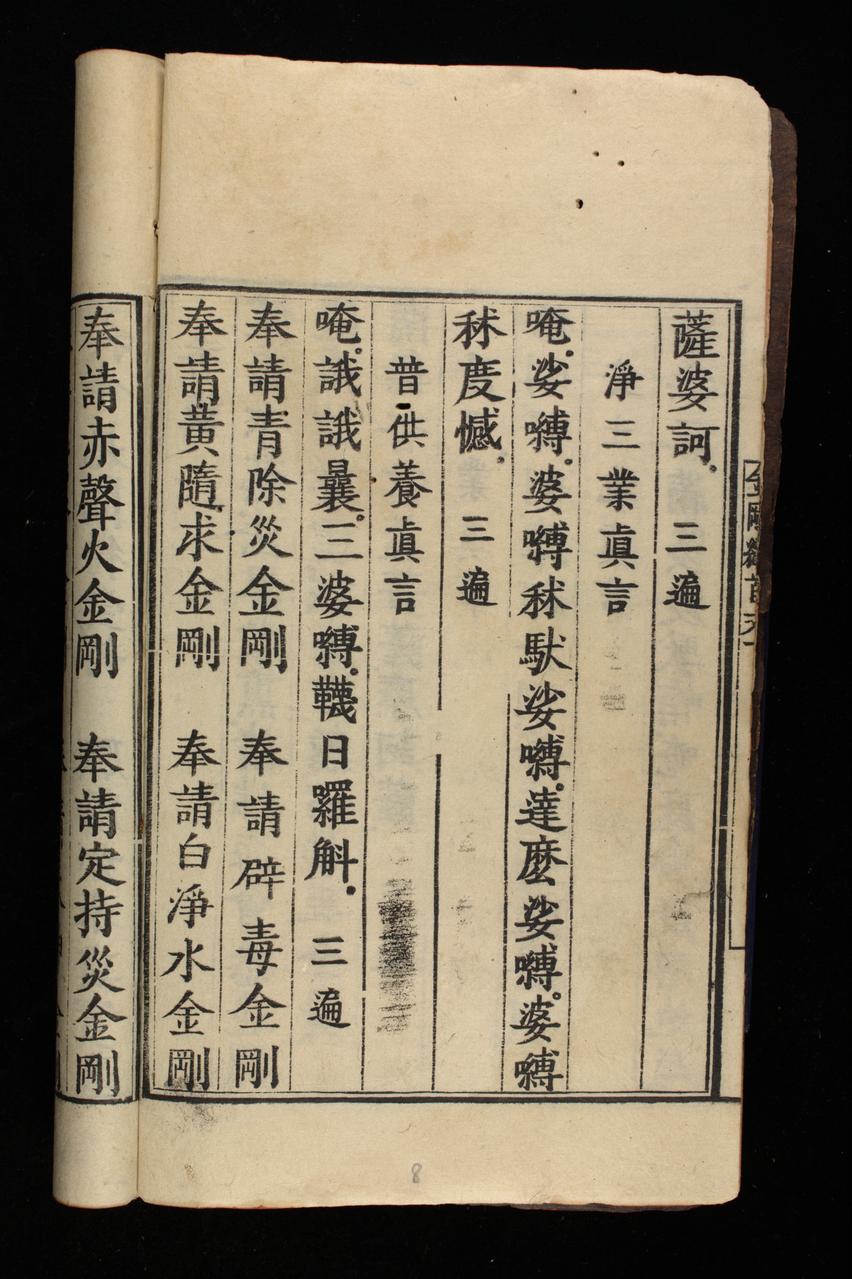 薩婆訶。三遍
淨三業眞言
唵。娑嚩。婆嚩秫馱娑嚩。達麼娑嚩。婆嚩
秫度憾。三遍
普供養眞言
唵。誐誐曩。三婆嚩。韈日羅斛。三遍
奉請青除災金剛 奉請辟毒金剛
奉請黃隨求金剛 奉請白淨水金剛
奉請赤聲火金剛 奉請定持災金剛
8